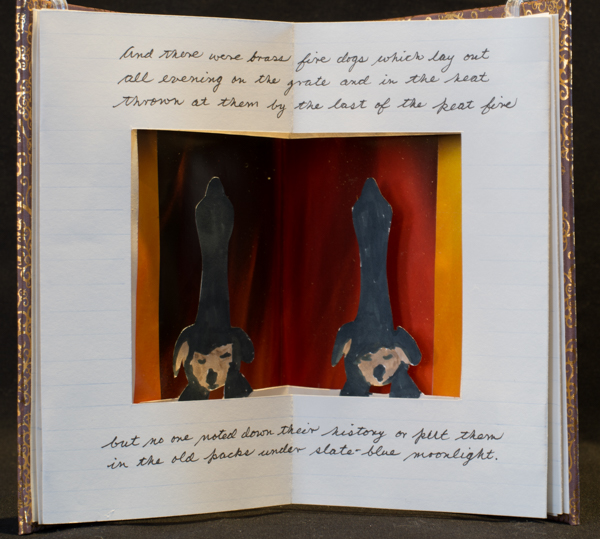 And there were brass fire dogs which lay out
all evening on the grate and in the heat
thrown at them by the last of the peat fire
but no one noted down their history or put them
in the old packs under slate-blue moonlight.